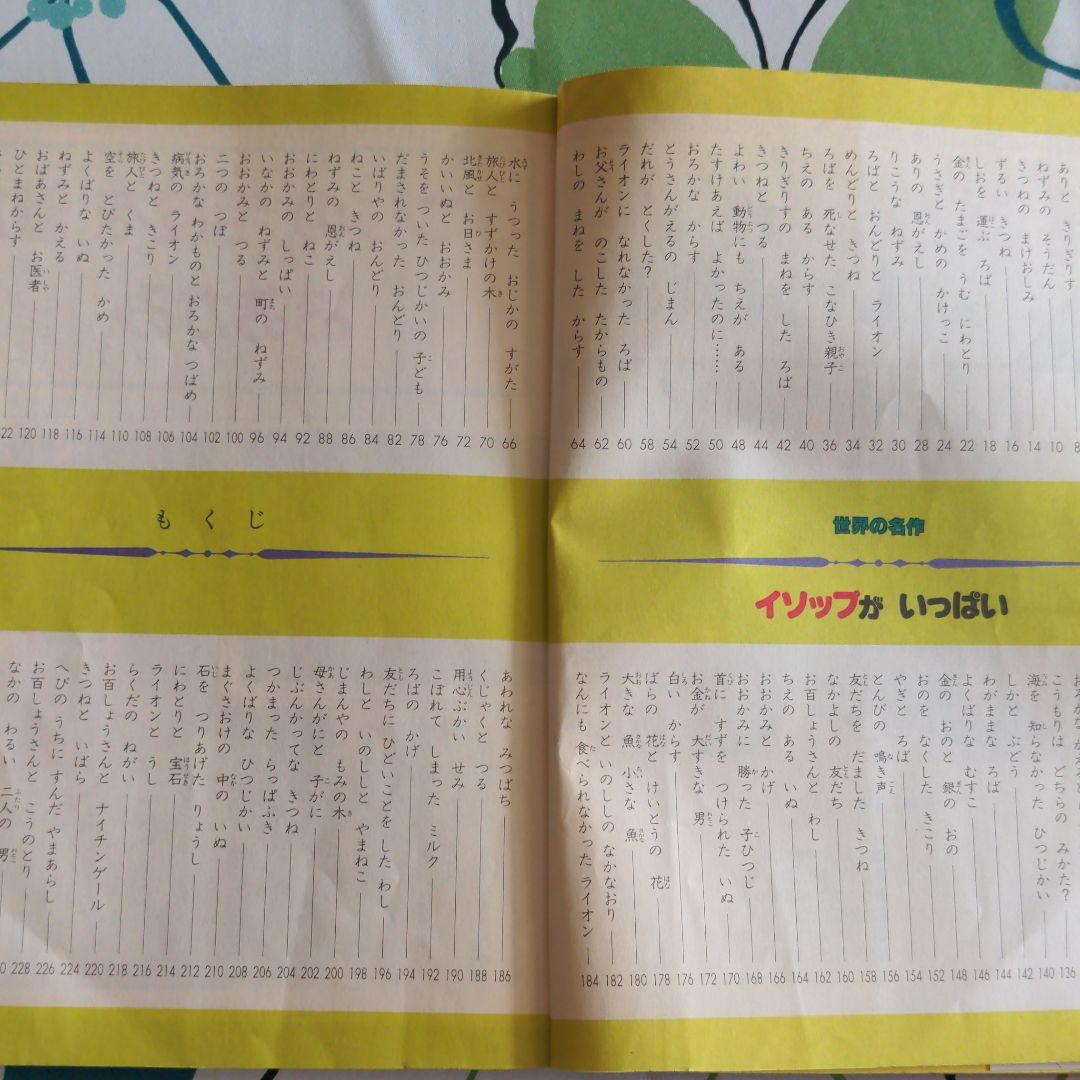 世界の名作
イソップが いっぱい
もくじ
ありと きりぎりす 8
ねずみの そうだん 10
きつねの まけおしみ 14
ずるい きつね 16
しおを 運ぶ ろば 18
金の たまごを うむ にわとり 22
うさぎと かめの かけっこ 24
ありの 恩がえし 28
りこうな ねずみ 30
ろばと おんどりと ライオン 32
めんどりと きつね 34
ろばを 死なせた こなひき親子 36
ちえの ある からす 40
きりぎりすの まねを した ろば 42
きつねと つる 44
よわい 動物にも ちえが ある 48
たすけあえば よかったのに…… 50
おろかな からす 52
とうさんがえるの じまん 54
だれが とくした? 58
ライオンに なれなかった ろば 60
お父さんが のこした たからもの 62
わしの まねを した からす 64
水に うつった おじかの すがた 66
旅人と すずかけの木 70
北風と お日さま 72
かいいぬと おおかみ 76
うそを ついた ひつじかいの 子ども 78
だまされなかった おんどり 82
いばりやの おんどり 84
ねこと きつね 86
ねずみの 恩がえし 88
にわとりと ねこ 92
おおかみの しっぱい 94
いなかの ねずみと 町の ねずみ 96
おおかみと つる 100
二つの つぼ 102
おろかな わかものと おろかな つばめ 104
病気の ライオン 106
きつねと きこり 108
旅人と くま 110
空を とびたかった かめ 114
よくばりな いぬ 116
ねずみと かえる 118
おばあさんと お医者 120
ひとまねからす 122
こうもりは どちらの みかた? 136
海を 知らなかった ひつじかい 140
しかと ぶどう 142
わがままな ろば 144
よくばりな むすこ 146
金の おのと 銀の おの 148
おのを なくした きこり 152
やぎと ろば 154
とんびの 鳴き声 156
友だちを だました きつね 158
なかよしの 友だち 160
お百しょうさんと わし 162
ちえの ある いぬ 164
おおかみと かげ 166
おおかみに 勝った 子ひつじ 168
首に すずを つけられた いぬ 170
お金が 大すきな 男 172
白い からす 176
ばらの 花と けいとうの 花 178
大きな 魚 小さな 魚 180
ライオンと いのししの なかなおり 182
なんにも 食べられなかった ライオン 184
あわれな みつばち 186
くじゃくと つる 188
用心ぶかい せみ 190
こぼれて しまった ミルク 192
ろばの かげ 194
友だちに ひどいことを した わし 196
わしと いのししと やまねこ 198
じまんやの もみの木 200
母さんがにと 子がに 202
じぶんかってな きつね 204
つかまった らっぱふき 206
よくばりな ひつじかい 208
まぐさおけの 中の いぬ 210
石を つりあげた りょうし 212
にわとりと 宝石 214
ライオンと うし 216
らくだの ねがい 218
お百しょうさんと ナイチンゲール 220
きつねと いばら 224
へびの うちに すんだ やまあらし 226
お百しょうさんと こうのとり 228
なかの わるい 二人の 男